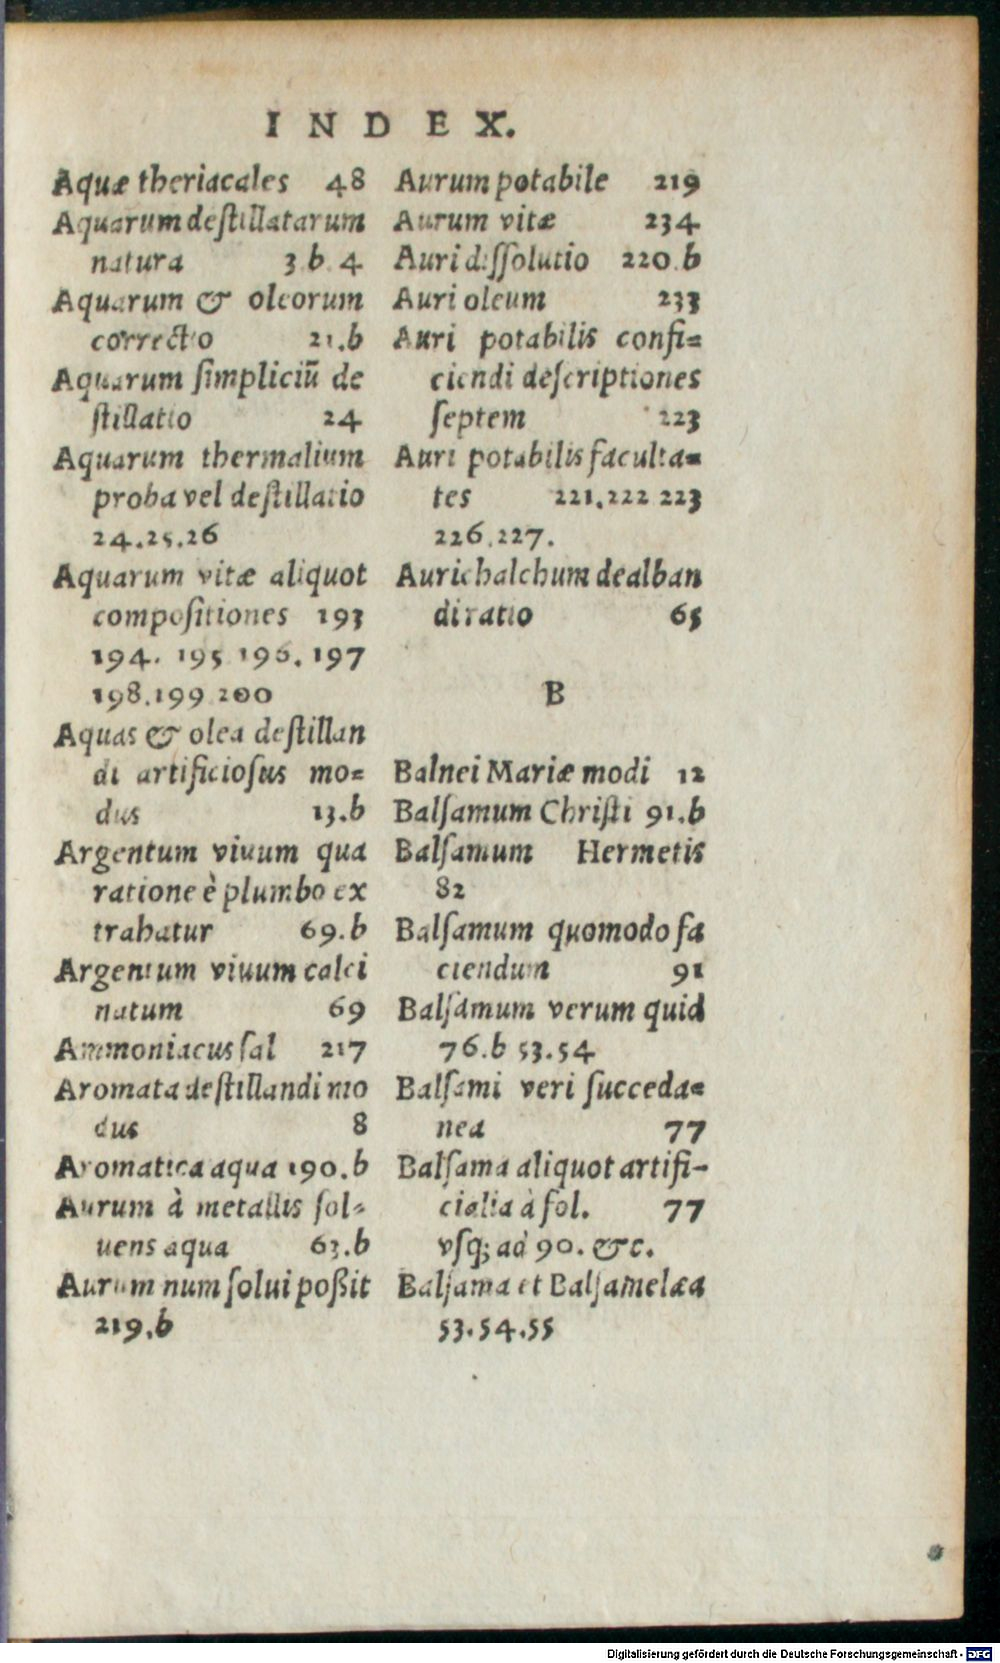 INDEX.
Aquæ theriacales 48
Aquarum deſtillatarum
natura 3.b.4
Aquarum & oleorum
correctio 21.b
Aquarum ſimpliciū de
ſtillatio 24
Aquarum thermalium
proba vel deſtillatio
24.25.26
Aquarum vitæ aliquot
compoſitiones 193
194. 195 196. 197
198.199 200
Aquas & olea deſtillan
di artificioſus mo=
dus 13.b
Argentum viuum qua
ratione è plumbo ex
trahatur 69.b
Argentum viuum calci
natum 69
Ammoniacus ſal 217
Aromata deſtillandi mo
dus 8
Aromatica aqua 190.b
Aurum à metallis ſol=
uens aqua 63.b
Aurum num ſolui poßit
219.b
Aurum potabile 219
Aurum vitæ 234
Auri diſſolutio 220.b
Auri oleum 233
Auri potabilis confi=
ciendi deſcriptiones
ſeptem 223
Auri potabilis faculta=
tes 221.222 223
226.227.
Aurichalchum dealban
di ratio 65
B
Balnei Mariæ modi 12
Balſamum Chriſti 91.b
Balſamum Hermetis
82
Balſamum quomodo fa
ciendum 91
Balſamum verum quid
76.b 53.54
Balſami veri ſucceda=
nea 77
Balſama aliquot artifi-
cialia à fol. 77
vſq; ad 90. &c.
Balſama et Balſamelæa
53.54.55
Digitalisierung gefördert durch die Deutsche Forschungsgemeinschaft - DFG